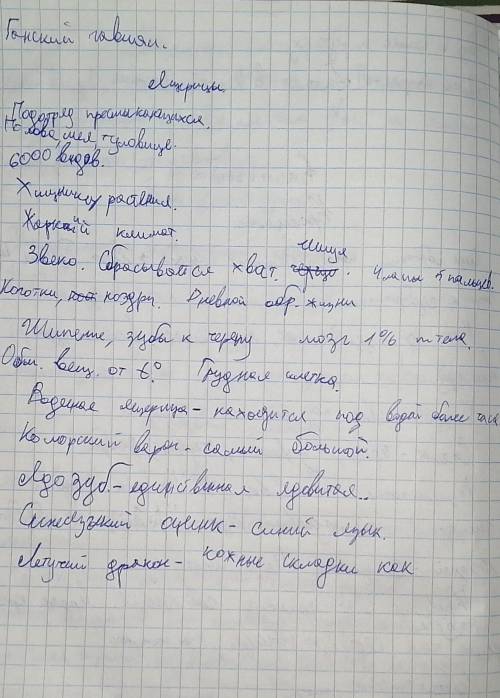 Ганский гавиал.
Ящерицы
Подотряд пресмыкающихся.
Голова, шея, туловище.
6000 видов.
Хищники, растения.
Жаркий климат.
Звено. Сбрасывается хват. чешуя. 4 лапы 5 пальцев.
Коготки, ноздри. Дневной обр. жизни
Шипение, зубы к черепу мозг 1% m тела.
Обм. вещ. от t°. Грудная клетка.
Водяная ящерица - находится под водой более часа
Коморский варан - самый большой.
Ядозуб. - единственная ядовитая..
Синеязыкий сцинк - синий язык.
Летучий дракон - кожные складки как